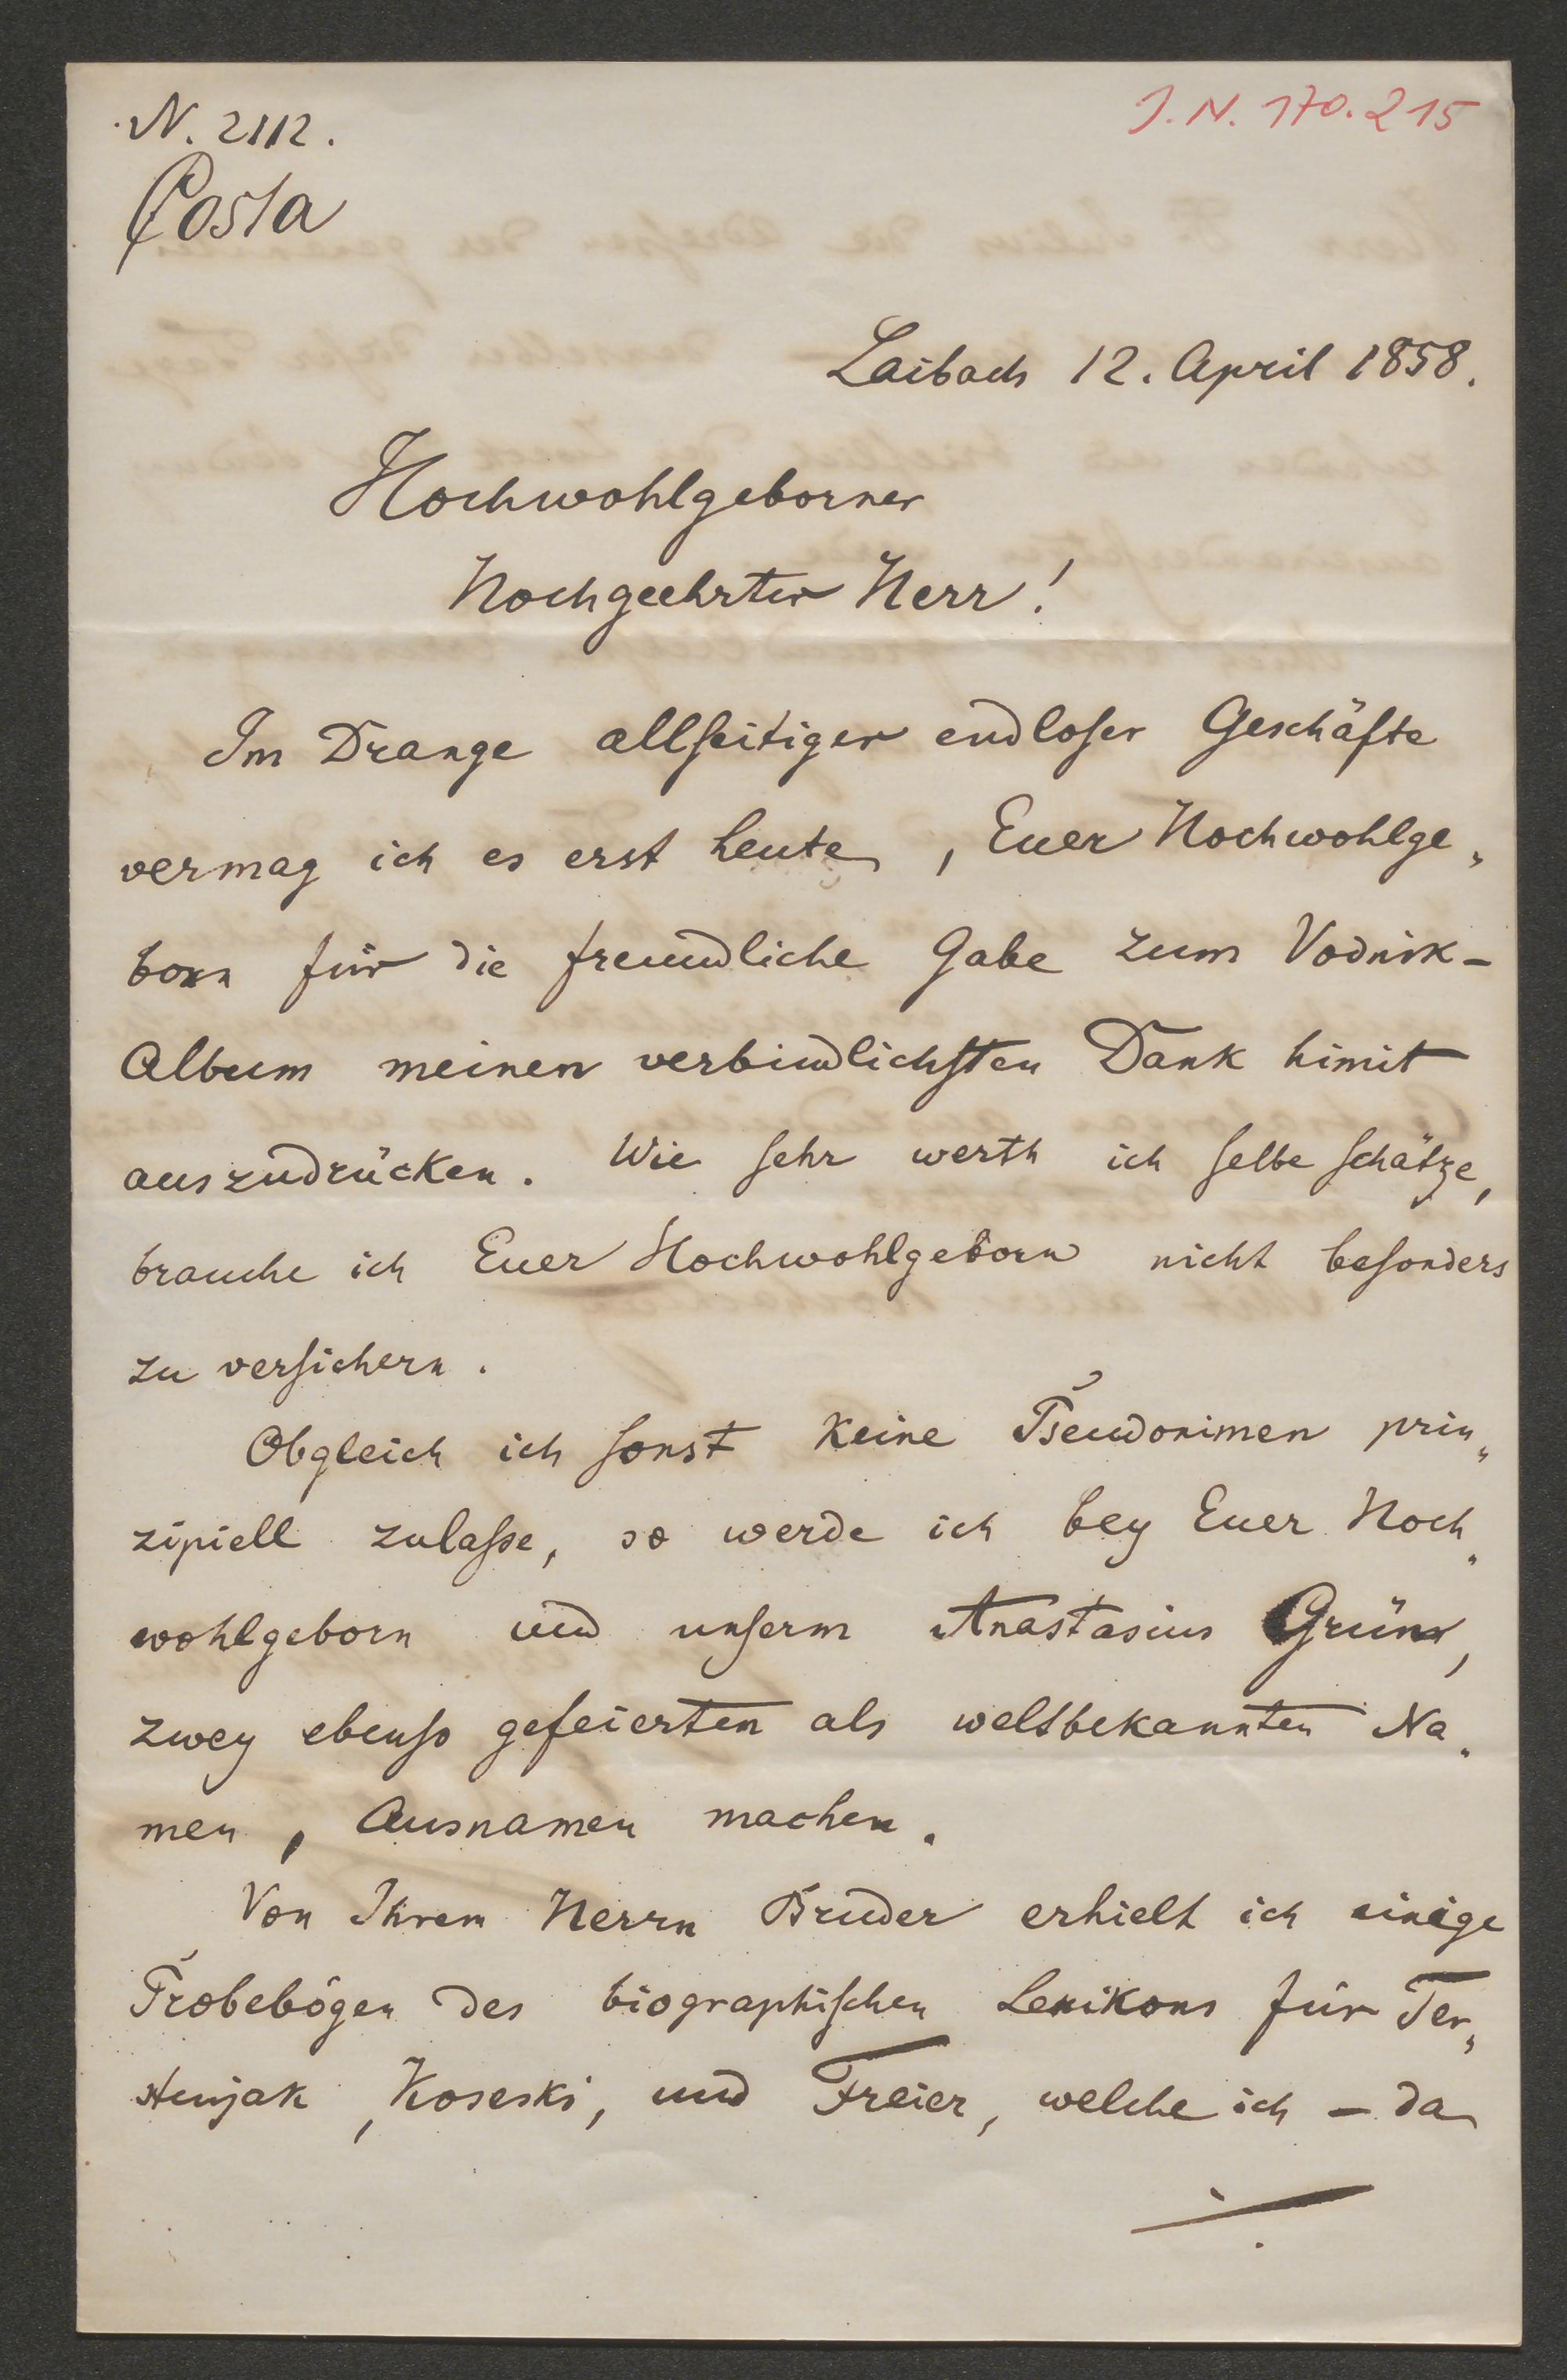 N. 2112.
J. N. 170.215
Costa
Laibach 12. April 1858.
Hochwohlgeborner
Hochgeehrter Herr!
Im Drange allseitiger endloser Geschäfte
vermag ich es erst heute, Euer Hochwohlge„
born für die freundliche Gabe zum Vodnik-
Album meinen verbindlichsten Dank himit
auszudrücken. Wie sehr werth ich selbe schätze,
brauche ich Euer Hochwohlgeborn nicht besonders
zu versichern.
Obgleich ich sonst keine Pseudonimen prin„
zipiell zulasse, so werde ich bey Euer Hoch„
wohlgeborn und unserm Anastasius Grün,
zwey ebenso gefeierten als weltbekannten Na„
men, Ausnamen machen.
Von Ihrem Herrn Bruder erhielt ich einige
Probebögen des biographischen Lexikons für Ter„
stenjak, Koseski, und Freier, welche ich – da
./.